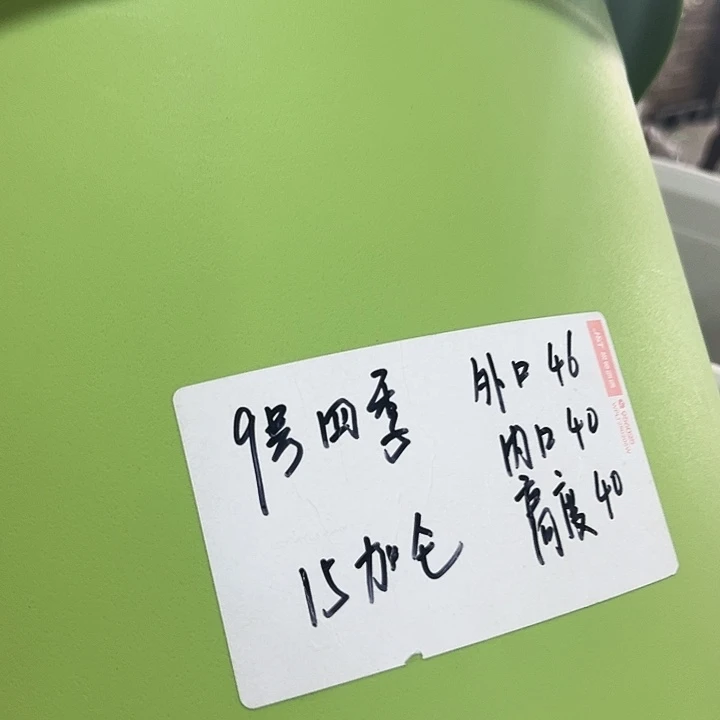 9号四季
15加仑
外口46
内口40
高度40
J&T